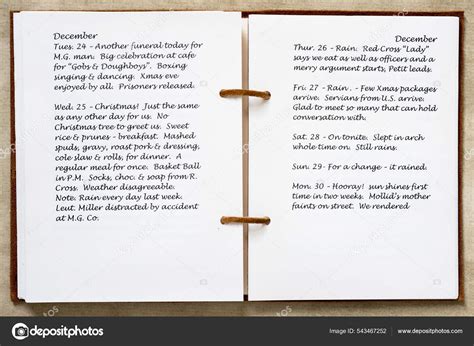 December
Tues. 24 - Another funeral today for
M.G. man. Big celebration at cafe
for "Gobs & Doughboys". Boxing
singing & dancing. Xmas eve
enjoyed by all. Prisoners released.
Wed. 25 - Christmas! Just the same
as any other day for us. No
Christmas tree to greet us. Sweet
rice & prunes - breakfast. Mashed
spuds, gravy, roast pork & dressing,
cole slaw & rolls, for dinner. A
regular meal for once. Basket Ball
in P.M. Socks, choc. & soap from R.
Cross. Weather disagreeable.
Note. Rain every day last week.
Leut. Miller distracted by accident
at M.G. Co.
December
Thur. 26 - Rain. Red Cross "Lady"
says we eat as well as officers and a
merry argument starts, Petit leads.
Fri. 27 - Rain . - Few Xmas packages
arrive. Servians from U.S. arrive.
Glad to meet so many that can hold
conversation with.
Sat. 28 - On tonite. Slept in arch
whole time on. Still rains.
Sun. 29 - For a change - it rained.
Mon. 30 - Hooray! sun shines first
time in two weeks. Mollid's mother
faints on street. We rendered
depositphotos
Image ID: 543467252
www.depositphotos.com